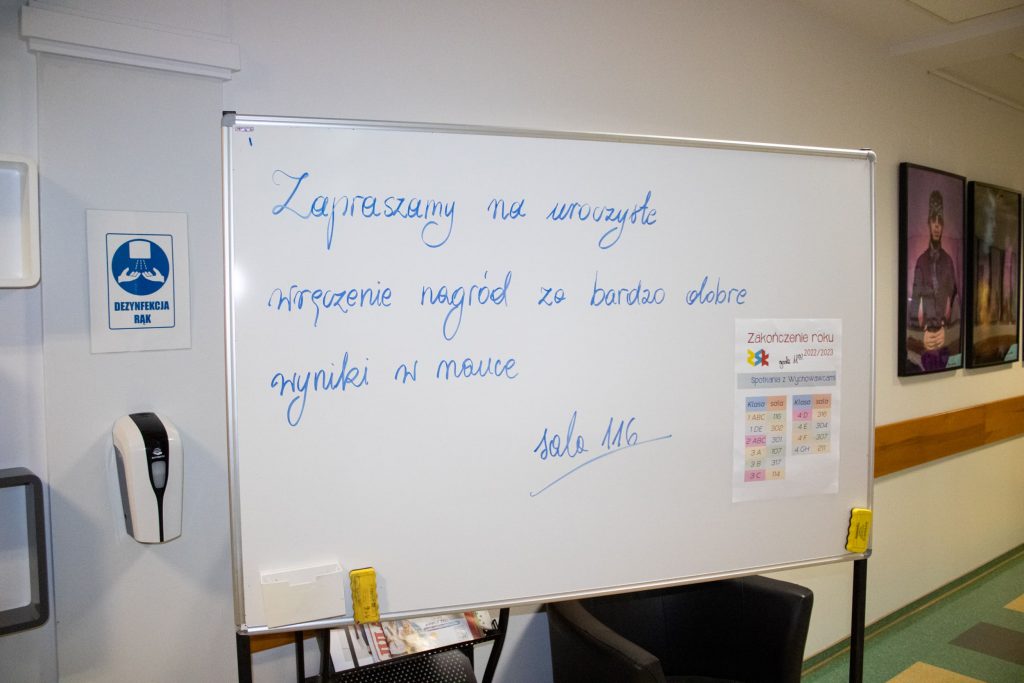 Zapraszamy na uroczyste
wręczenie nagród za bardzo dobre
wyniki w nauce
sala 116
DEZYNFEKCJA
RĄK
Zakończenie roku
2022/2023
Spotkania z Wychowawcami
Klasa sala
1 ABC 116
1 DE 302
2 ABC 301
3 A 107
3 B 317
3 C 114
Klasa sala
4 D 316
4 E 304
4 F 307
4 GH 211